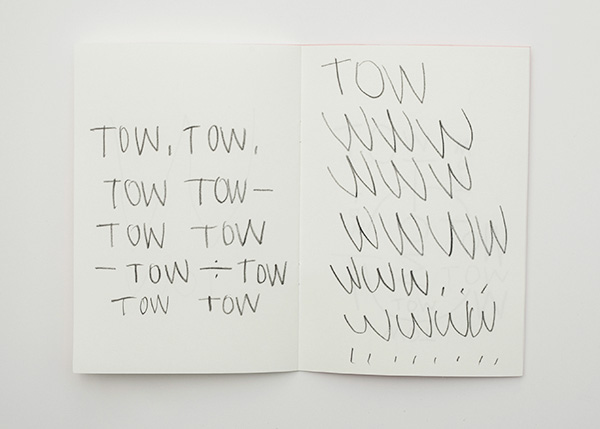 TOW, TOW,
TOW TOW—
TOW TOW
— TOW ÷ TOW
TOW TOW
TOW
WWW
WWW
WWWW
WWW...
WWWW
ı ı ı ı ı ı ı ı ı